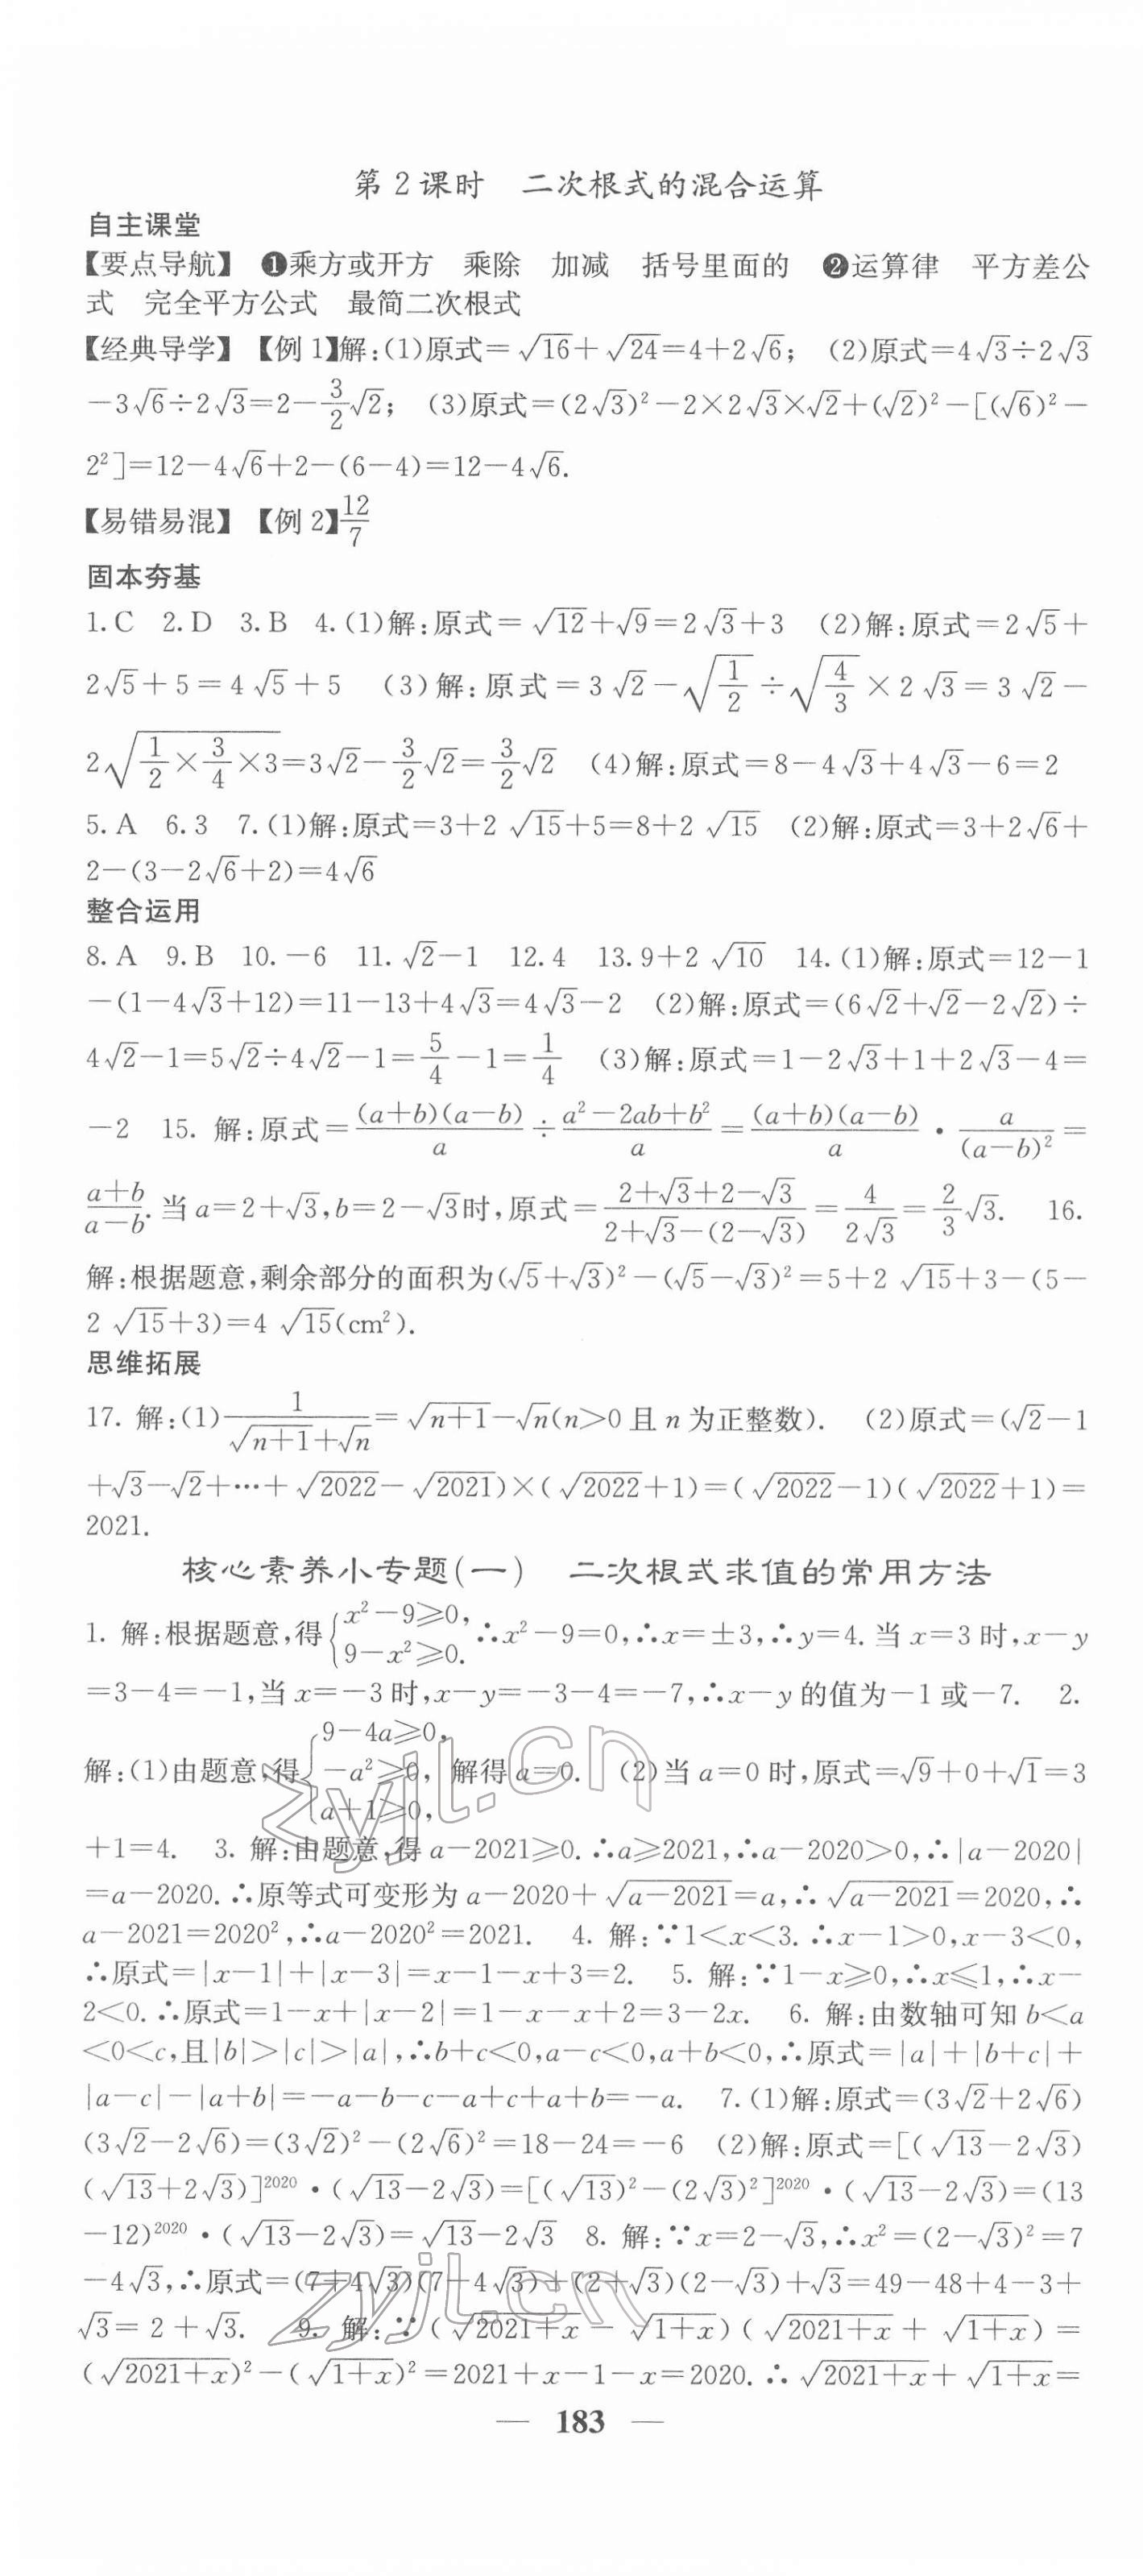 第2课时　二次根式的混合运算
自主课堂
【要点导航】 ❶乘方或开方　乘除　加减　括号里面的　❷运算律　平方差公
式　完全平方公式　最简二次根式
【经典导学】【例1】解:(1)原式=√16+√24=4+2√6; (2)原式=4√3÷2√3
-3√6÷2√3=2-3/2√2; (3)原式=(2√3)²-2×2√3×√2+(√2)²-[(√6)²-
2²]=12-4√6+2-(6-4)=12-4√6.
【易错易混】【例2】12/7
固本夯基
1.C 2.D 3.B 4.(1)解:原式=√12+√9=2√3+3 (2)解:原式=2√5+
2√5+5=4√5+5 (3)解:原式=3√2-√(1/2)÷√(4/3)×2√3=3√2-
2√(1/2×3/4×3)=3√2-3/2√2=3/2√2 (4)解:原式=8-4√3+4√3-6=2
5.A 6.3 7.(1)解:原式=3+2√15+5=8+2√15 (2)解:原式=3+2√6+
2-(3-2√6+2)=4√6
整合运用
8.A 9.B 10.-6 11.√2-1 12.4 13.9+2√10 14.(1)解:原式=12-1
-(1-4√3+12)=11-13+4√3=4√3-2 (2)解:原式=(6√2+√2-2√2)÷
4√2-1=5√2÷4√2-1=5/4-1=1/4 (3)解:原式=1-2√3+1+2√3-4=
-2 15. 解:原式=(a+b)(a-b)/a÷(a²-2ab+b²)/a=(a+b)(a-b)/a·a/(a-b)²=
(a+b)/(a-b).当a=2+√3,b=2-√3时,原式=(2+√3+2-√3)/(2+√3-(2-√3))=4/(2√3)=2/3√3. 16.
解:根据题意,剩余部分的面积为(√5+√3)²-(√5-√3)²=5+2√15+3-(5-
2√15+3)=4√15(cm²).
思维拓展
17. 解:(1)1/(√(n+1)+√n)=√(n+1)-√n(n>0且n为正整数). (2)原式=(√2-1
+√3-√2+…+√2022-√2021)×(√2022+1)=(√2022-1)(√2022+1)=
2021.
核心素养小专题(一)　二次根式求值的常用方法
1. 解:根据题意,得{x²-9≥0, 9-x²≥0. ∴x²-9=0,∴x=±3,∴y=4.当x=3时,x-y
=3-4=-1,当x=-3时,x-y=-3-4=-7,∴x-y的值为-1或-7. 2.
解:(1)由题意,得{9-4a≥0, -a²≥0, a+1≥0, 解得a=0. (2)当a=0时,原式=√9+0+√1=3
+1=4. 3. 解:由题意,得a-2021≥0.∴a≥2021,∴a-2020>0,∴|a-2020|
=a-2020.∴原等式可变形为a-2020+√(a-2021)=a,∴√(a-2021)=2020,∴
a-2021=2020²,∴a-2020²=2021. 4. 解:∵1<x<3.∴x-1>0,x-3<0,
∴原式=|x-1|+|x-3|=x-1-x+3=2. 5. 解:∵1-x≥0,∴x≤1,∴x-
2<0.∴原式=1-x+|x-2|=1-x-x+2=3-2x. 6. 解:由数轴可知b<a
<0<c,且|b|>|c|>|a|,∴b+c<0,a-c<0,a+b<0,∴原式=|a|+|b+c|+
|a-c|-|a+b|=-a-b-c-a+c+a+b=-a. 7.(1)解:原式=(3√2+2√6)
(3√2-2√6)=(3√2)²-(2√6)²=18-24=-6 (2)解:原式=[(√13-2√3)
(√13+2√3)]²⁰²⁰·(√13-2√3)=[(√13)²-(2√3)²]²⁰²⁰·(√13-2√3)=(13
-12)²⁰²⁰·(√13-2√3)=√13-2√3 8. 解:∵x=2-√3,∴x²=(2-√3)²=7
-4√3,∴原式=(7+4√3)(7-4√3)+(2+√3)(2-√3)+√3=49-48+4-3+
√3=2+√3. 9. 解:∵(√(2021+x)-√(1+x))(√(2021+x)+√(1+x))=
(√(2021+x))²-(√(1+x))²=2021+x-1-x=2020.∴√(2021+x)+√(1+x)=
— 183 —
zyjl.cn
zyjl.cn